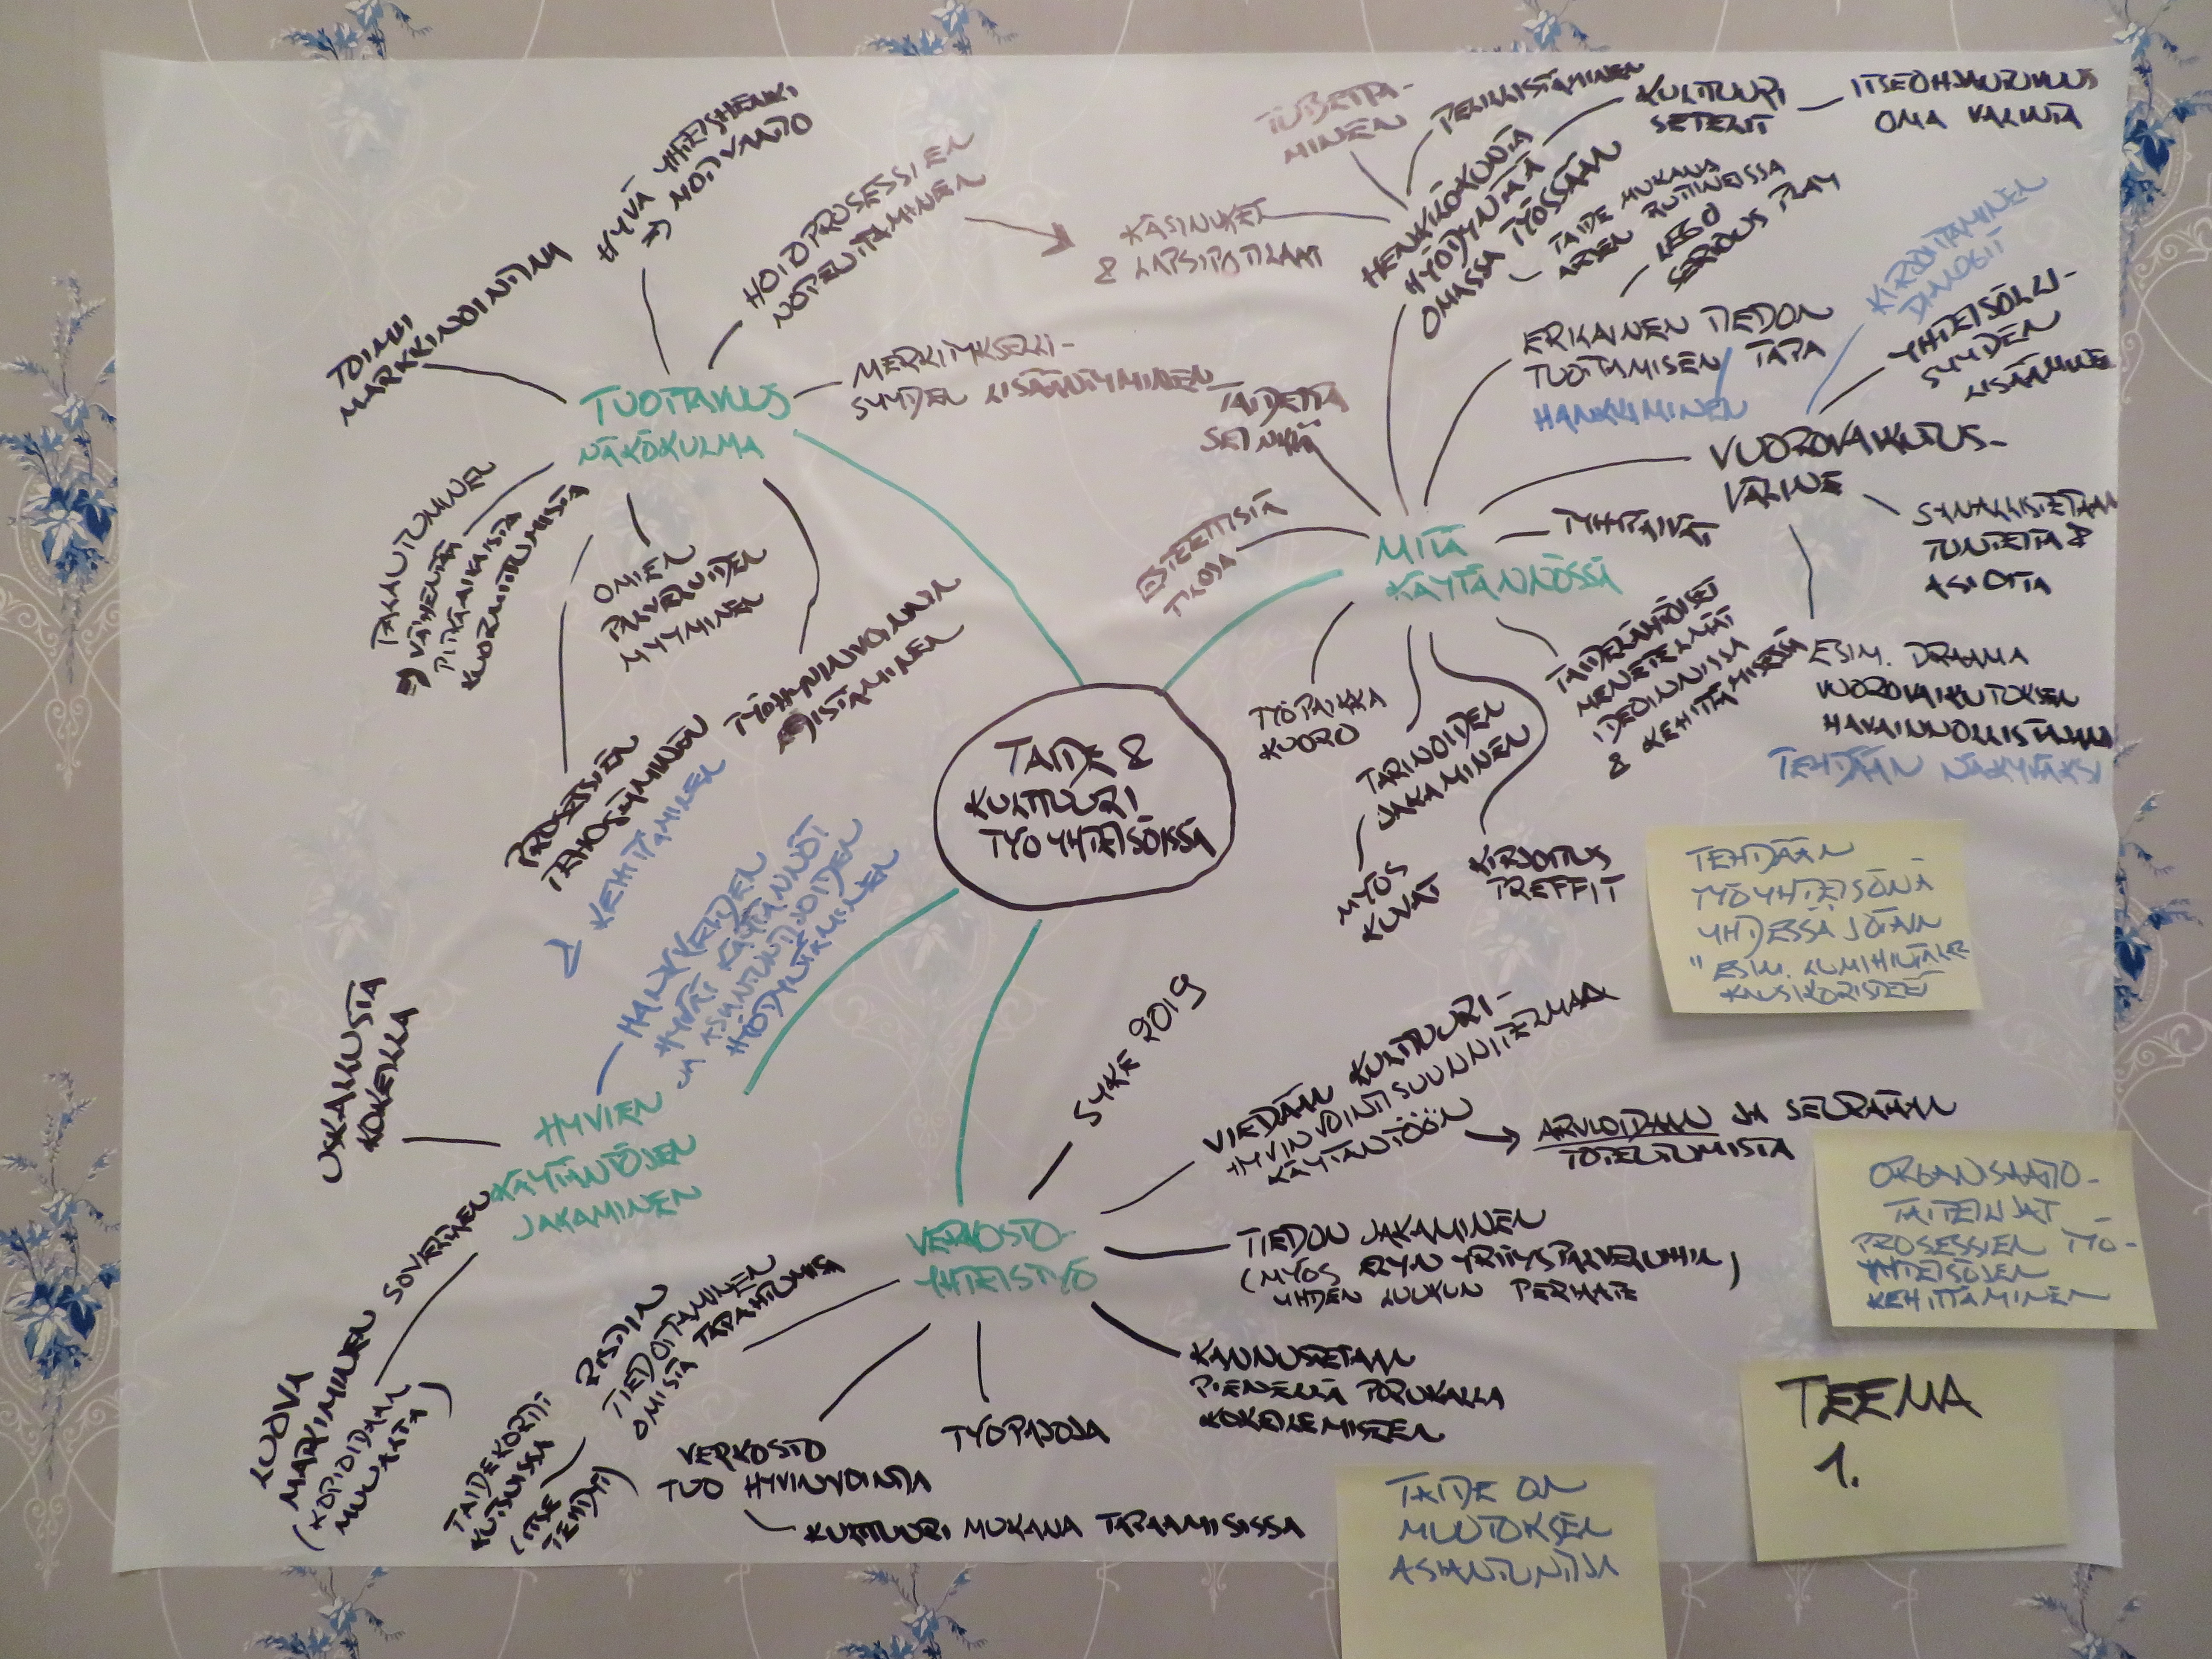 TAIDE &
KULTTUURI
TYÖYHTEISÖISSÄ
TUOTTAVUUS
NÄKÖKULMA
TOIMII
MARKKINOINTINA
HYVÄ YHTEISHENKI
=> MOTIVAATIO
HOITOPROSESSIEN
NOPEUTTAMINEN
KÄSINUKET
& LAPSIPOTILAAT
MERKITYKSELLI-
SYYDEN LISÄÄNTYMINEN
PALAUTUMINEN
=> VÄHENTÄÄ
PITKÄAIKAISTA
KUORMITTUMISTA
OMIEN
PALVELUIDEN
MYYMINEN
TYÖHYVINVOINNIN
LISTAMINEN
PROSESSIEN
TEHOSTUMINEN
KEHITTÄMINEN
MITÄ
KÄYTÄNNÖSSÄ
TAIDETTA
SEINILLÄ
ESTEETTISIÄ
TILOJA
HENKILÖKUNTA
HYÖDYNTÄÄ
OMASSA TYÖSSÄÄN
TUBETTA-
MINEN
PELILLISTÄMINEN
KULTTUURI
SETELIT
ITSEOHJAUTUVUUS
OMA VALINTA
TAIDE MUKANA
ARJEN RUTIINEISSA
LEGO
SERIOUS PLAY
ERILAINEN TIEDON
TUOTTAMISEN TAPA
HANKKIMINEN
KIRJOITTAMINEN
DIALOGIT
YHTEISÖLLI-
SYYDEN
LISÄÄMINEN
VUOROVAIKUTUS-
VÄLINE
SANALLISTETAAN
TUNTEITA &
ASIOITA
ESIM. DRAAMA
VUOROVAIKUTUKSEN
HAVAINNOLLISTAJANA
TEHDÄÄN NÄKYVÄKSI
TYHYPÄIVÄT
TAIDELÄHTÖISET
MENETELMÄT
IDEOINNISSA
& KEHITTÄMISESSÄ
TYÖPAIKKA
KUORO
TARINOIDEN
JAKAMINEN
MYÖS
KUVAT
KIRJOITUS
TREFFIT
TEHDÄÄN
TYÖYHTEISÖNÄ
YHDESSÄ JOTAIN
HANKKEIDEN
HYVÄT KÄYTÄNNÖT
JA ASIANTUNTIJOIDEN
HYÖDYNTÄMINEN
HYVIEN
KÄYTÄNTÖJEN
JAKAMINEN
USKALLUSTA
KOKEILLA
LUOVA
MATKIMINEN SOVELTAEN
(KOPIOIDAAN
MUUALTA)
VERKOSTO-
YHTEISTYÖ
SYKE 2019
VIEDÄÄN KULTTUURI-
HYVINVOINTISUUNNITELMAA
KÄYTÄNTÖÖN
ARVIOIDAAN JA SEURATAAN
TOTEUTUMISTA
TIEDON JAKAMINEN
(MYÖS ELYN YRITYSPALVELUIHIN)
YHDEN LUUKUN PERIAATE
KANNUSTETAAN
PIENELLÄ PORUKALLA
KOKEILEMISEEN
TYÖPAJOJA
VERKOSTO
TUO HYVINVOINTIA
KULTTUURI MUKANA TAPAAMISISSA
RISTIIN
TIEDOTTAMINEN
OMISTA TAPAHTUMISTA
TAIDEKORTTI
KUTSUISSA
(ITSE
TEHDYT)
ORGANISAATIO-
TAITEILIJAT
PROSESSIEN TYÖ-
YHTEISÖJEN
KEHITTÄMINEN
TEEMA
1.
TAIDE ON
MUUTOKSEN
ASIANTUNTIJA